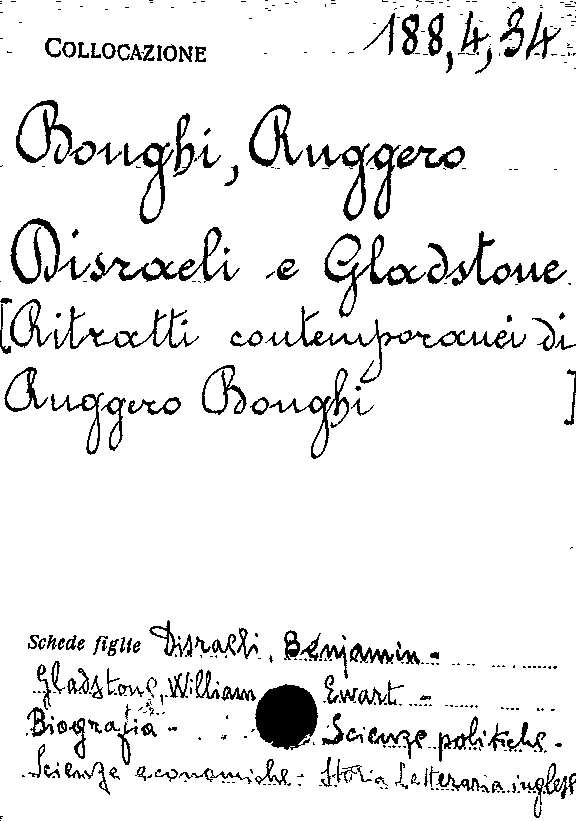 COLLOCAZIONE 188,4,34
Bonghi, Ruggero
Disraeli e Gladstone
[Ritratti contemporanei di
Ruggero Bonghi ]
Schede figlie Disraeli, Benjamin -
Gladstone, William Ewart -
Biografia - Scienze politiche -
Scienze economiche - Storia Letteraria inglese